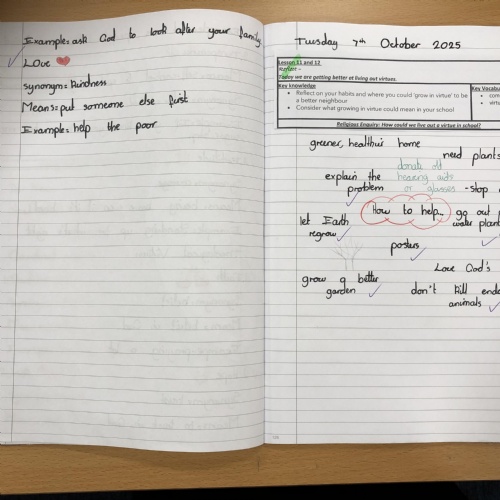 Example: ask God to look after your family
Love
synonym: kindness
Means: put someone else first
Example: help the poor
Tuesday 7th October 2025
Lesson 11 and 12
Today we are getting better at living out virtues.
Key knowledge
Key Vocabu
Reflect on your habits and where you could 'grow in virtue' to be
a better neighbour
Consider what growing in virtue could mean in your school
com
virtu
Religious Enquiry: How could we live out a virtue in school?
greener, healthier home
need plants
donate old
explain the hearing aids
problem or glasses -stop
How to help...
let Earth
regrow
go out
water plant
posters
Love God's
grow a better
garden
don't kill end
animals